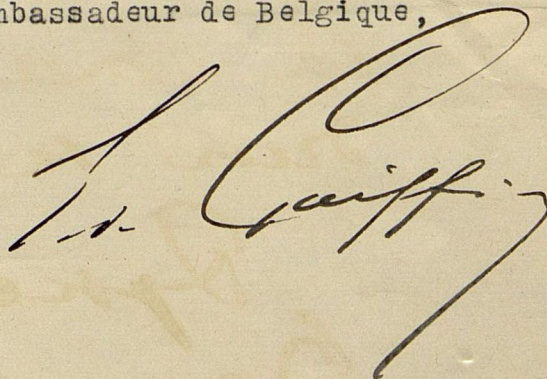 mbassadeur de Belgique,
E. de Gaiffier